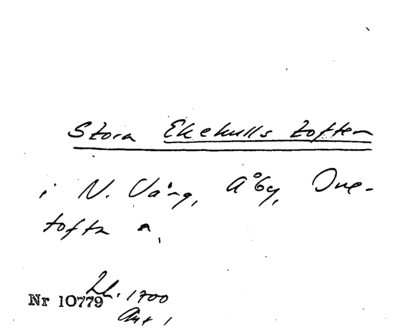 Stora Ekekulls toften
i N. Vång, Åby, Ove-
tofta
Nr 10779 1700